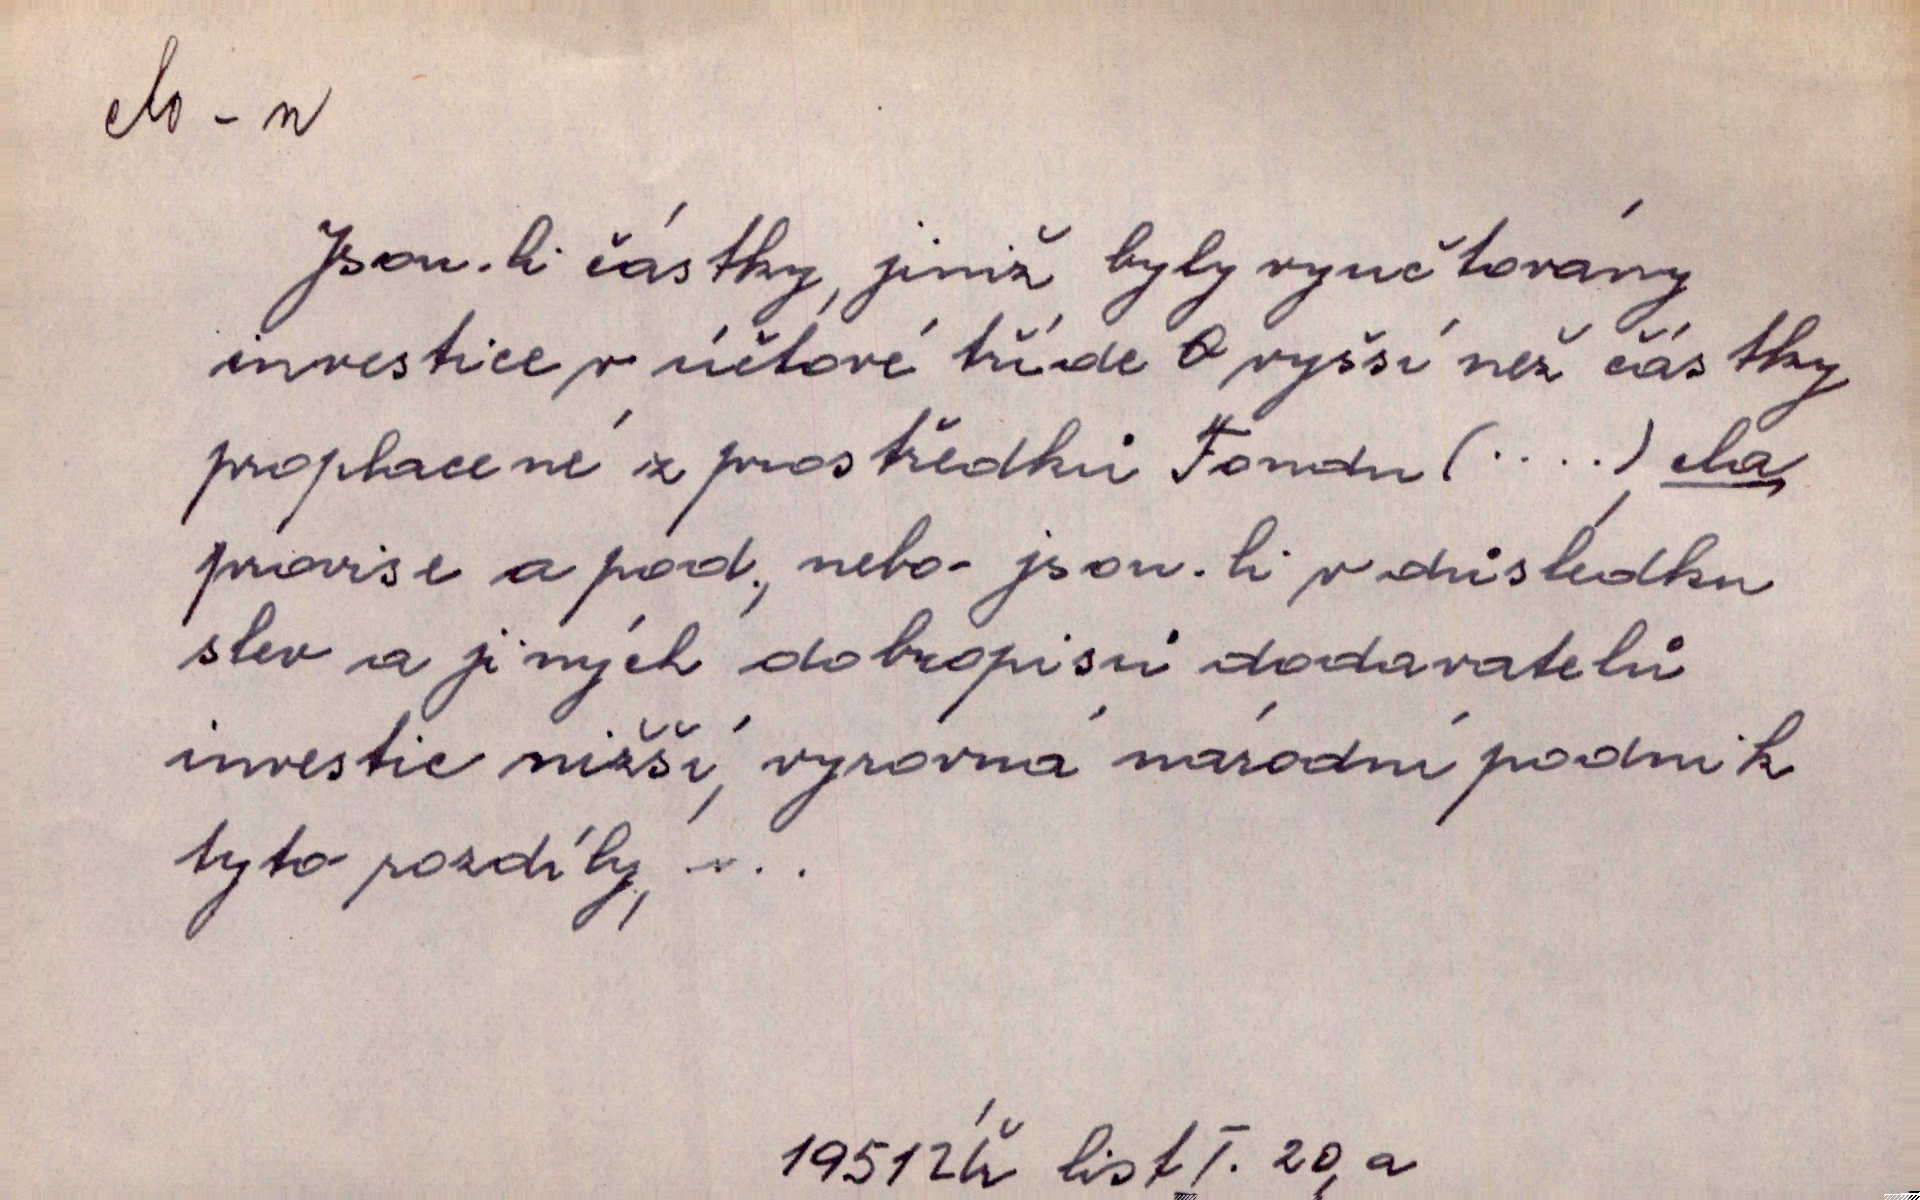 clo - n
Jsou-li částky, jimiž byly vyúčtovány
investice v účtové třídě 0 vyšší než částky
proplacené z prostředků Fondu (....) cla,
provise a pod., nebo jsou-li v důsledku
slev a jiných dobropisů dodavatelů
investic nižší, vyrovná národní podnik
tyto rozdíly, ...
1951 list I. 20, a